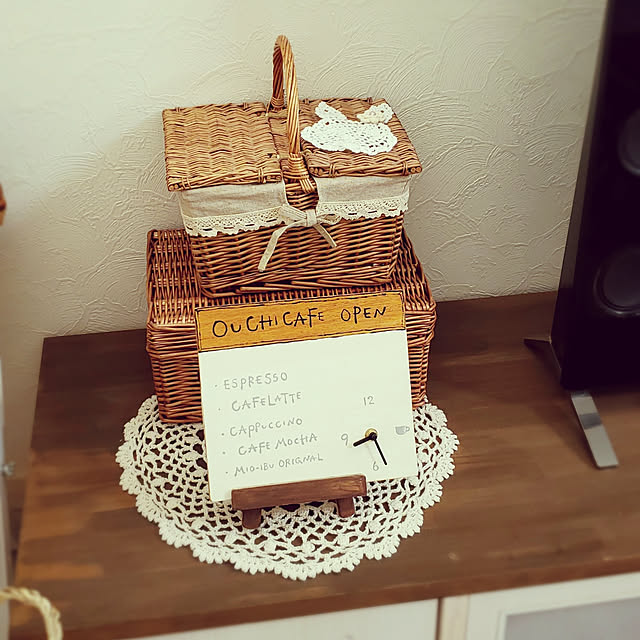 OUCHICAFE OPEN
· ESPRESSO
· CAFELATTE
· CAPPUCCINO
· CAFE MOCHA
· MIO-IBU ORIGNAL
12
9
6